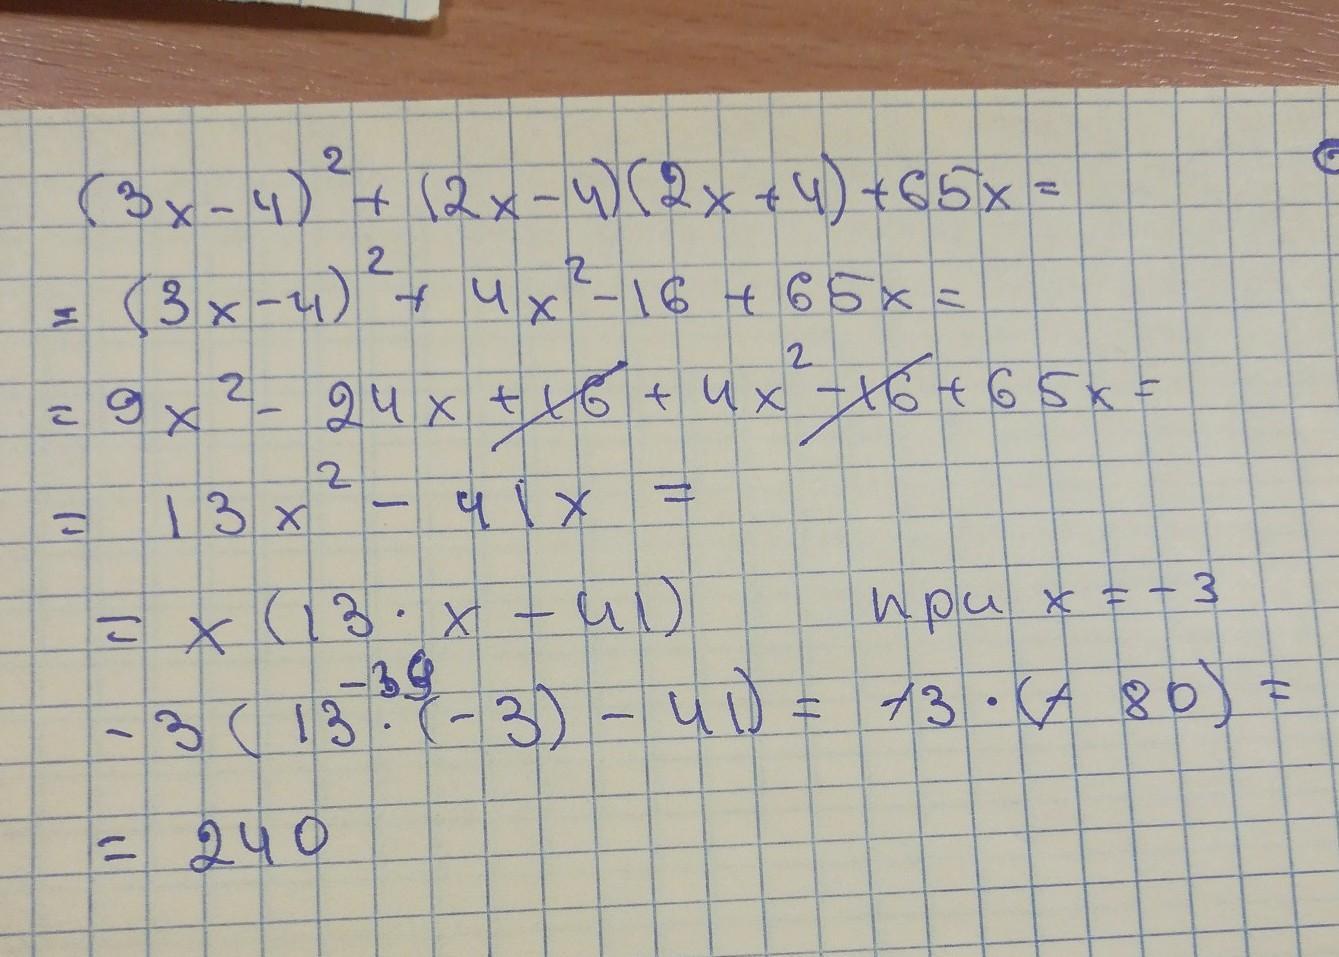 (3x-4)² + (2x-4)(2x+4)+65x=
= (3x-4)² + 4x²-16 + 65x =
= 9x² - 24x + 16 + 4x² - 16 + 65x =
= 13x² - 41x =
= x(13 · x - 41) при x = -3
-39
-3(13 · (-3) - 41) = +3 · (+ 80) =
= 240